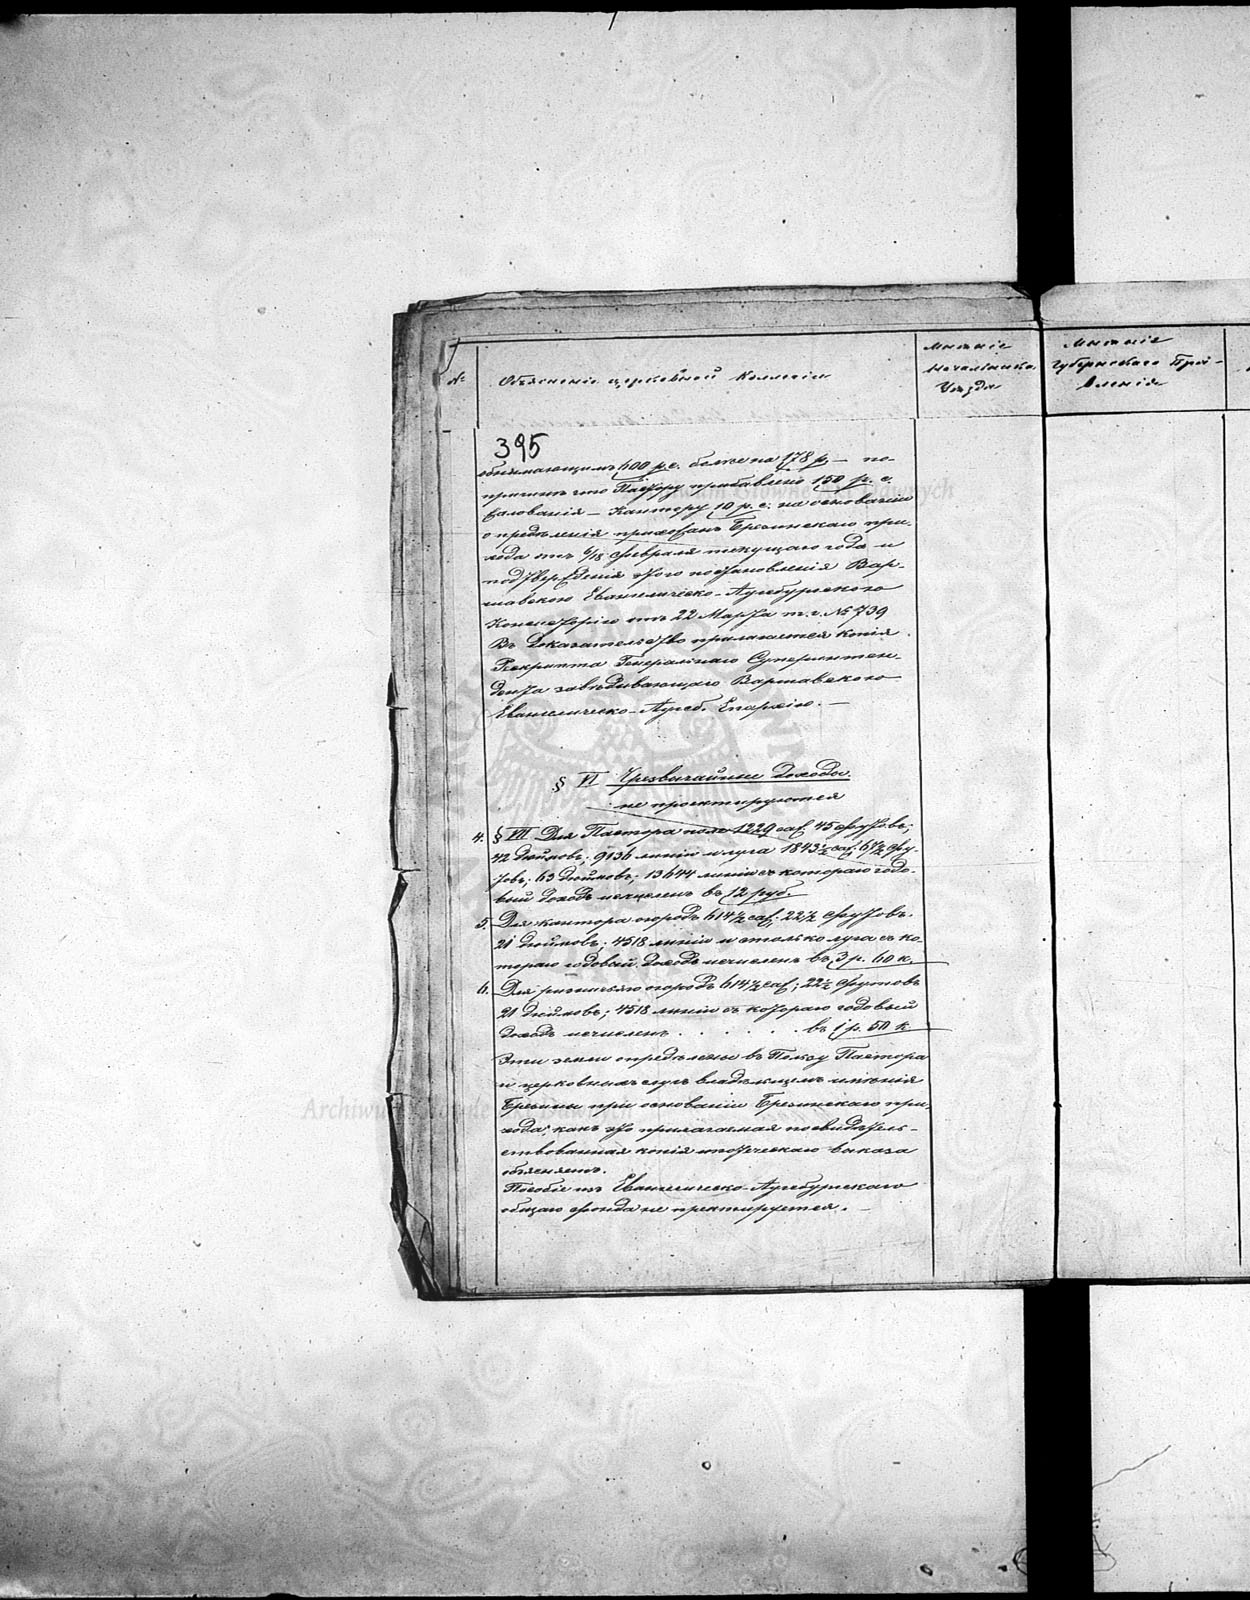 №
Объясненіе церковной Коллегіи
Мнѣніе
Начальника
Уѣзда
Мнѣніе
Губернскаго Пра-
вленія
395
обнимающимъ 600 р. с. более на 178 р. — по-
причинѣ что Пастору прибавлено 150 р. с.
жалованія — Кантору 10 р. с. на основаніи
опредѣленія прихожанъ Брезинскаго при-
хода отъ 6/18 февраля текущаго года и
подтвержденія этого постановленія Вар-
шавскою Евангелическо-Аугсбургскою
Консисторіею отъ 22 Марта т. г. № 739
Въ Доказательство прилагается копія
Рескрипта Генеральнаго Суперинтен-
дента завѣдывающаго Варшавскою
Евангелическо-Аугсб. Епархіею. —
§ VI Чрезвычайные Доходы
не проектируются
4. § VII Для Пастора поле 1229 саж. 45 футовъ;
42 дюймовъ; 9136 линіи и луга 1843½ саж; 67½ фу-
товъ; 63 дюймовъ; 13644 линіи съ котораго годо-
вый доходъ исчисленъ въ 12 руб.
5. Для кантора огородъ 614½ саж; 22½ футовъ.
21 дюймовъ; 4518 линіи и столько луга съ ко-
тораго годовый доходъ исчисленъ въ 3 р. 60 к.
6. Для огородъ 614½ саж; 22½ футовъ
21 дюймовъ; 4518 линіи съ котораго годовый
доходъ исчисленъ . . . . . въ 1 р. 50 к.
Эти земли опредѣлены въ Пользу Пастора
и церковныхъ слугъ владѣльцемъ имѣнія
Брезины при основаніи Брезинскаго при-
хода, какъ это прилагаемая посвидѣтель-
ствованная копія ипотеческаго выказа
объясняетъ.
Пособіе изъ Евангелическо-Аугсбургскаго
общаго фонда не проектируется. —
Archiwum Główne Akt Dawnych
Archiwum Główne Akt Dawnych